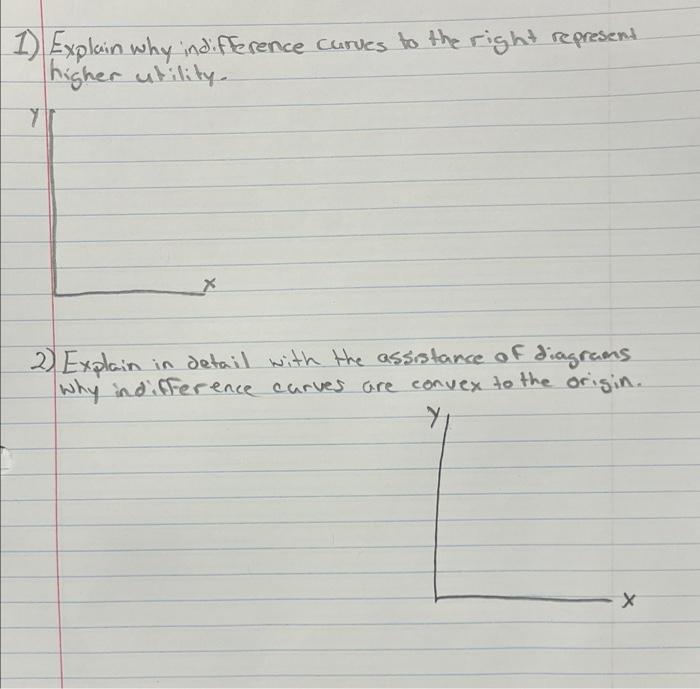 1) Explain why indifference curves to the right represent
higher utility.
Y
X
2) Explain in detail with the assistance of diagrams
why indifference curves are convex to the origin.
Y
X